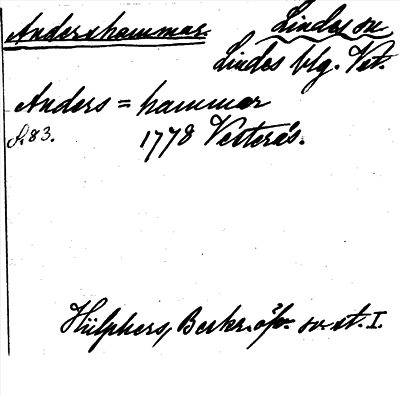 Andershammar. Lindes sn
Lindes blg. Vst.
Anders = hammar
S. 83. 1778 Vesterås.
Hülphers, Beskr. öfv. sv. st. I.